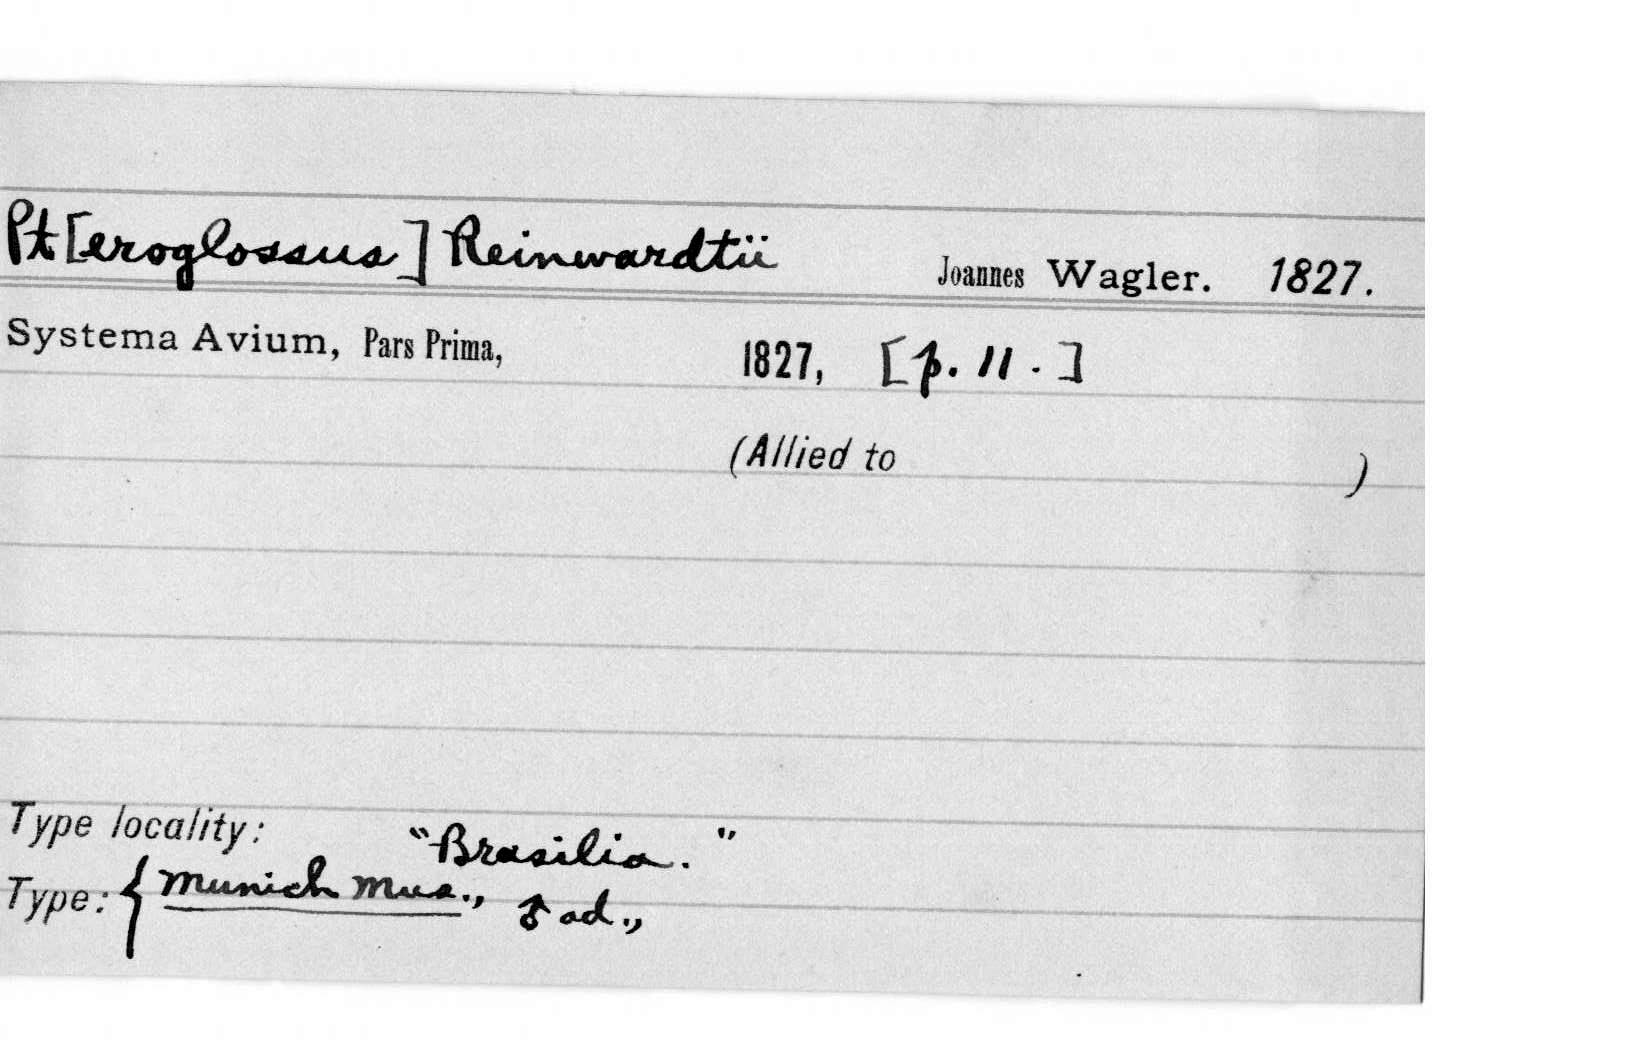 Pt[eroglossus] Reinwardtii Joannes Wagler. 1827.
Systema Avium, Pars Prima, 1827, [p. 11.]
(Allied to )
Type locality: "Brasilia."
Type: { Munich Mus., ♂ ad.,